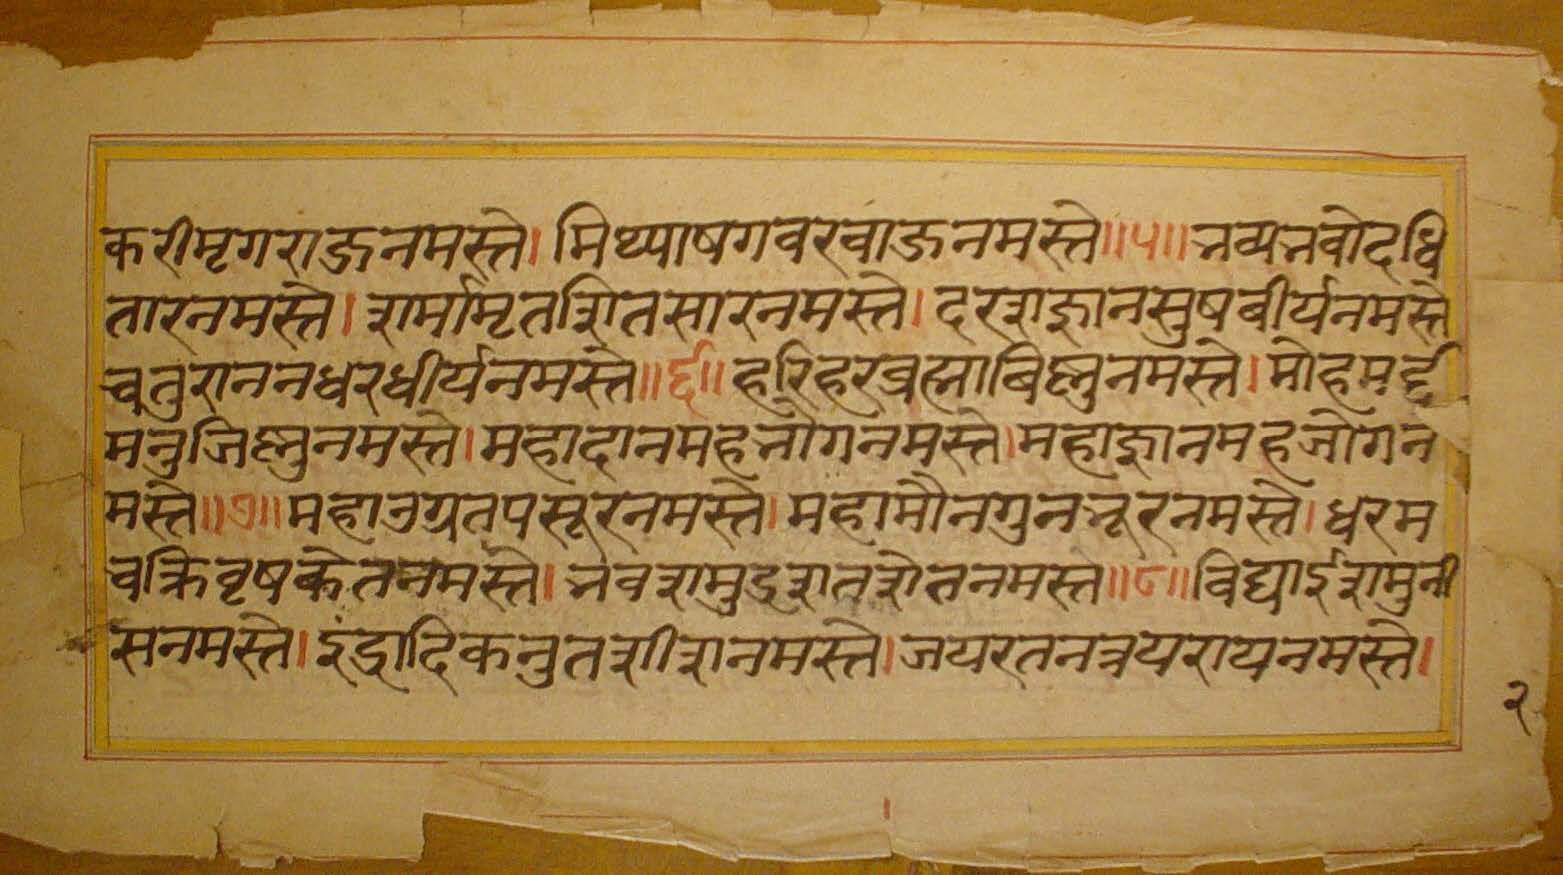 करीमृगराजनमस्ते। मिथ्याषगवरवाजनमस्ते॥५॥भव्यभवोदधि
तारनमस्ते। शर्मामृतशितसारनमस्ते। दरशज्ञानसुषबीर्यनमस्ते
चतुराननधरधीर्यनमस्ते॥६॥ हरिहरब्रह्माबिष्णुनमस्ते। मोहमर्द्द
मनुजिष्णुनमस्ते। महादानमहभोगनमस्ते। महाज्ञानमहजोगन
मस्ते॥७॥ महाउग्रतपसूरनमस्ते। महामौनगुनभूरनमस्ते। धरम
चक्रिवृषकेतनमस्ते। भवसमुद्रशतशेतनमस्ते॥८॥ विद्याईशमुनी
सनमस्ते। इंद्रादिकनुतशीशनमस्ते। जयरतनत्रयरायनमस्ते।
२